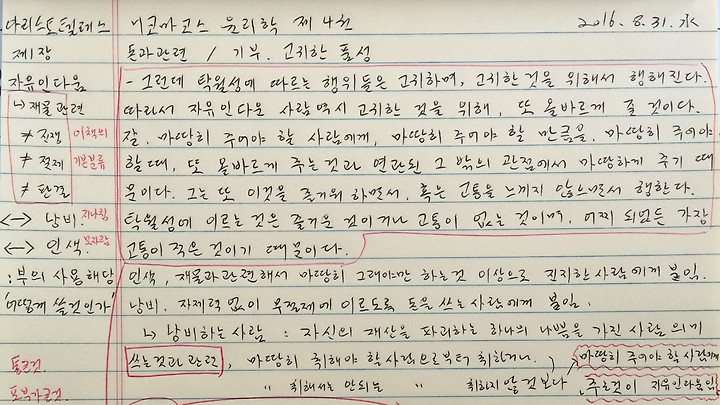 아리스토텔레스 니코마코스 윤리학 제 4권 2016. 8. 31. 水
제1장 돈과 관련 / 기부. 고귀한 품성
자유인다움 - 그런데 탁월성에 따르는 행위들은 고귀하며, 고귀한 것을 위해서 행해진다.
↳ 재물 관련 따라서 자유인다운 사람 역시 고귀한 것을 위해, 또 올바르게 줄 것이다.
≠ 전쟁 이 책의 잘. 마땅히 주어야 할 사람에게, 마땅히 주어야 할 만큼을. 마땅히 주어야
≠ 절제 기본분류 할 때, 또 올바르게 주는 것과 연관된 그 밖의 관점에서 마땅하게 주기 때
≠ 판결 문이다. 그는 또 이것을 즐거워 하면서, 혹은 고통을 느끼지 않으면서 행한다.
<-> 낭비. 지나침 탁월성에 이르는 것은 즐거운 것이거나 고통이 없는 것이며, 어찌 되었든 가장
<-> 인색. 모자람 고통이 적은 것이기 때문이다.
: 부의 사용 해당 인색, 재물과 관련해서 마땅히 그래야만 하는 것 이상으로 진지한 사람에게 붙임.
'어떻게 쓸 것인가' 낭비. 자제력 없이 무절제에 이르도록 돈을 쓰는 사람에게 붙임.
↳ 낭비하는 사람 : 자신의 재산을 파괴하는 하나의 나쁨을 가진 사람 의미
쓰는 것과 관련, 마땅히 취해야 할 사람으로부터 취하거나. 마땅히 주어야 할 사람에게
〃 취해서는 안되는 〃 취하지 않을 것보다 주는 것이 자유인다움임